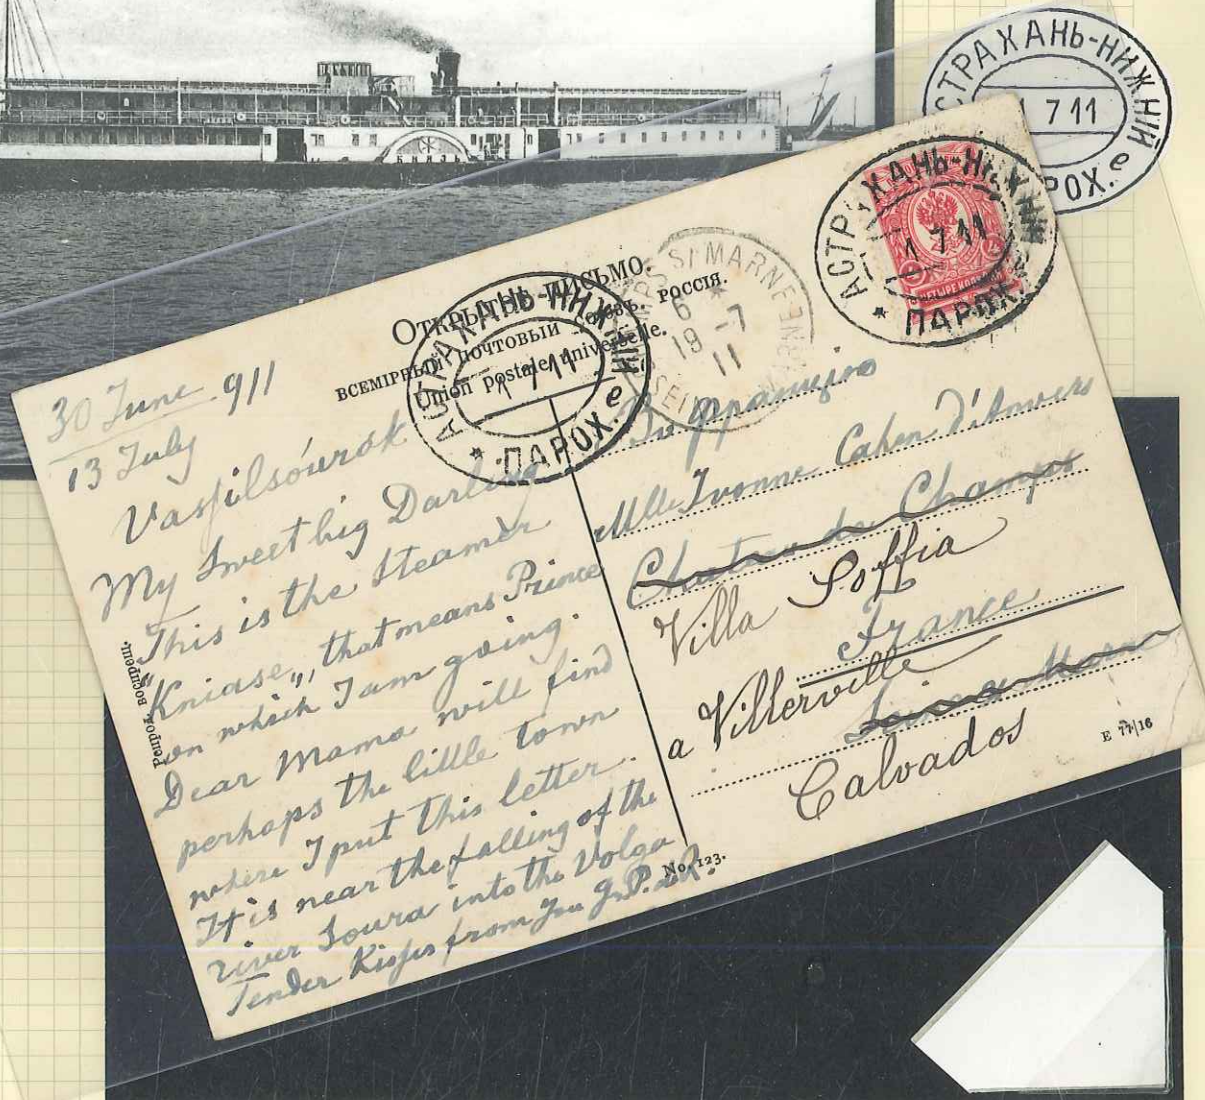 КНЯЗЬ
АСТРАХАНЬ-НИЖНІЙ
1 7 11
ПАРОХ. е
ОТКРЫТОЕ ПИСЬМО.
ВСЕМІРНЫЙ ПОЧТОВЫЙ СОЮЗЪ. РОССІЯ.
Union postale universelle.
АСТРАХАНЬ-НИЖНІЙ
1 7 11
* ПАРОХ. е
S/MARNE
6 *
19 -7
11
АСТРАХАНЬ-НИЖНІЙ
1 7 11
* ПАРОХ. е
ЧЕТЫРЕ
30 June 911
13 July
Vassilsóursk
My Sweet big Darling
This is the Steamer
"Kniase", that means Prince
on which I am going.
Dear Mama will find
perhaps the little town
where I put this letter.
It is near the falling of the
river Soura into the Volga
Tender Kisses from
Во Францию
Mlle Ivonne Cahen d'Anvers
Chateau de Champs
Villa Soffia
France
a Villerville
Calvados
Репрод. воспрещ.
No. 123.
E 77/16